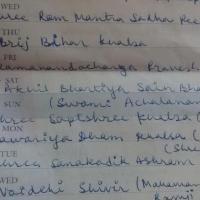 WED
ree Ram Mantra Sadha Pee
THU
brij Bihar Khalsa
FRI
Ramanandacharya
SAT
Akhil Bhartiya Sain Bha
SUN
(Swami Achalanan
Shree Saptshree Khalsa (
MON
awariya Dham Khalsa (
(Shr
TUE
hree Sanakadik Ashram
WED
Vaidehi Shivir (Mahaman
Ramji